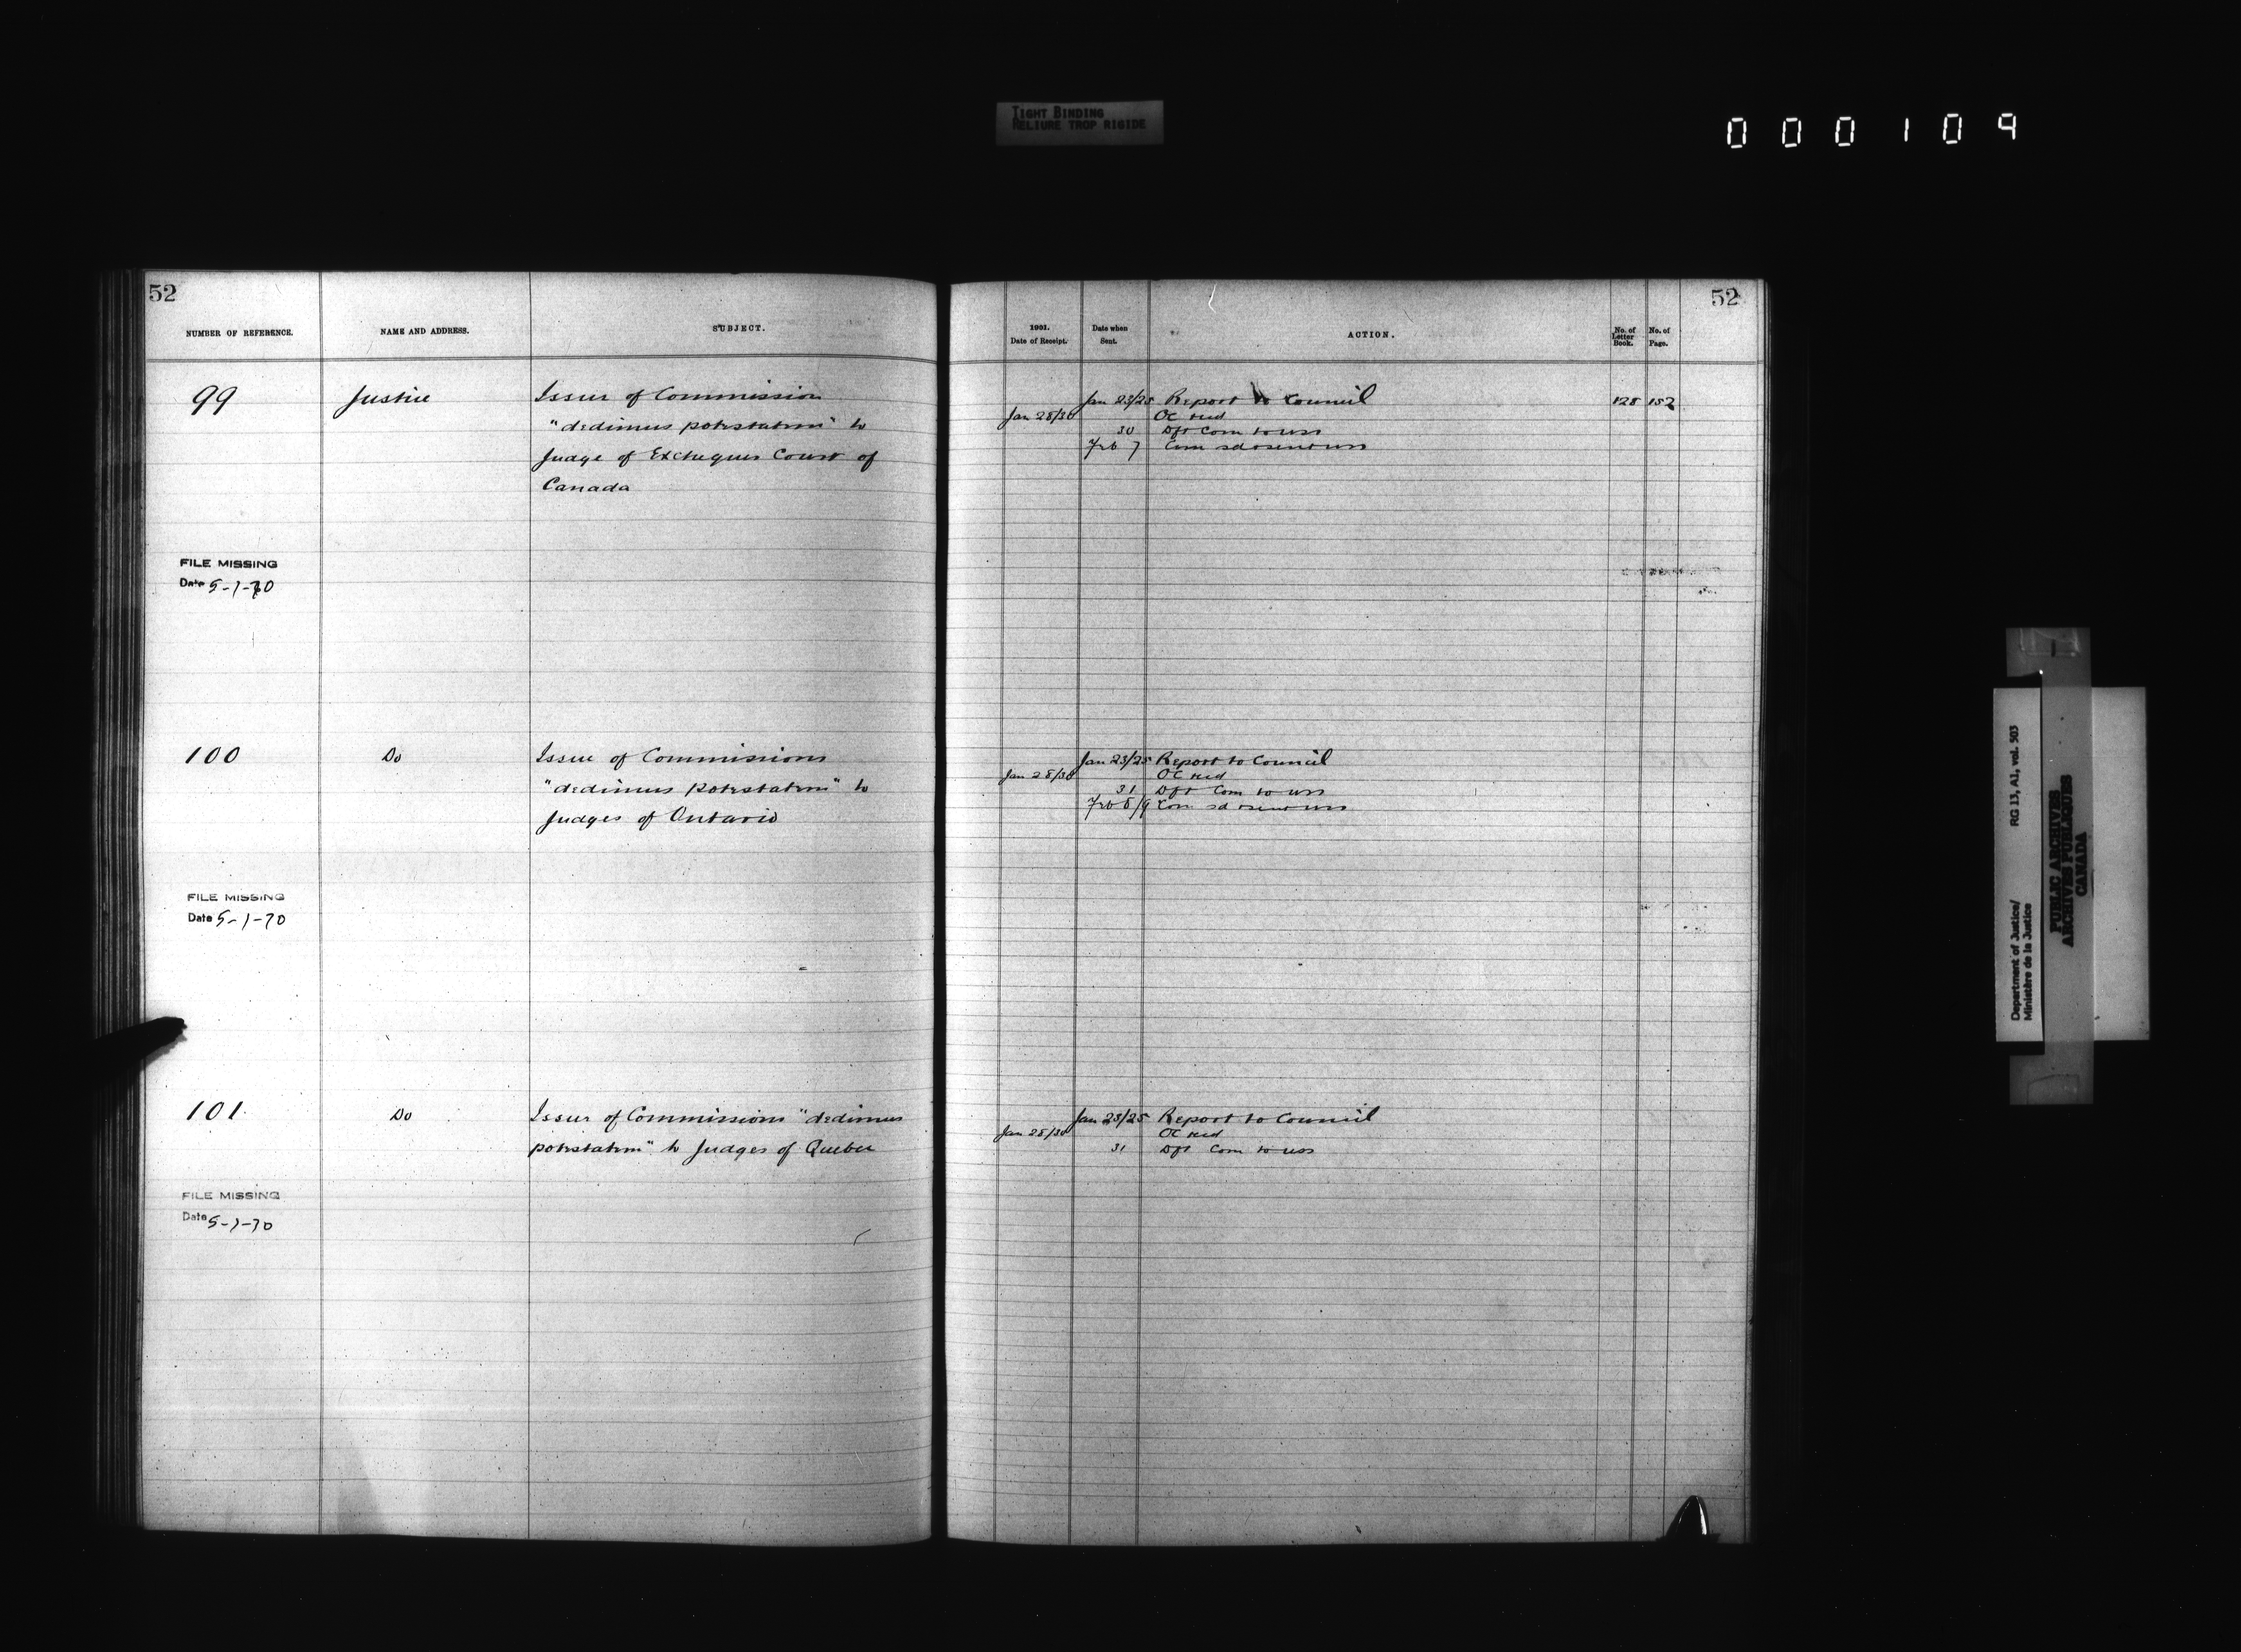 TIGHT BINDING
RELIURE TROP RIGIDE
000109
52
NUMBER OF REFERENCE.
NAME AND ADDRESS.
SUBJECT.
99
Justice
Issue of Commission
"dedimus potestatem" to
Judge of Exchequer Court of
Canada
FILE MISSING
Date 5-1-70
100
Do
Issue of Commissions
"dedimus potestatem" to
Judges of Ontario
FILE MISSING
Date 5-1-70
101
Do
Issue of Commissions "dedimus
potestatem" to Judges of Quebec
FILE MISSING
Date 5-1-70
52
1901.
Date of Receipt.
Date when
Sent.
ACTION.
No. of
Letter
Book.
No. of
Page.
Jan 23/25 Report to Council 128 152
Jan 28/30 OC recd
30 Dft Com to uss
Feb 7 Com
Jan 23/25 Report to Council
Jan 28/30 OC recd
31 Dft Com to uss
Feb 8/9 Com
Jan 23/25 Report to Council
Jan 28/30 OC recd
31 Dft Com to uss
Department of Justice/
Ministère de la Justice
RG 13, A1, vol. 503
PUBLIC ARCHIVES
ARCHIVES PUBLIQUES
CANADA